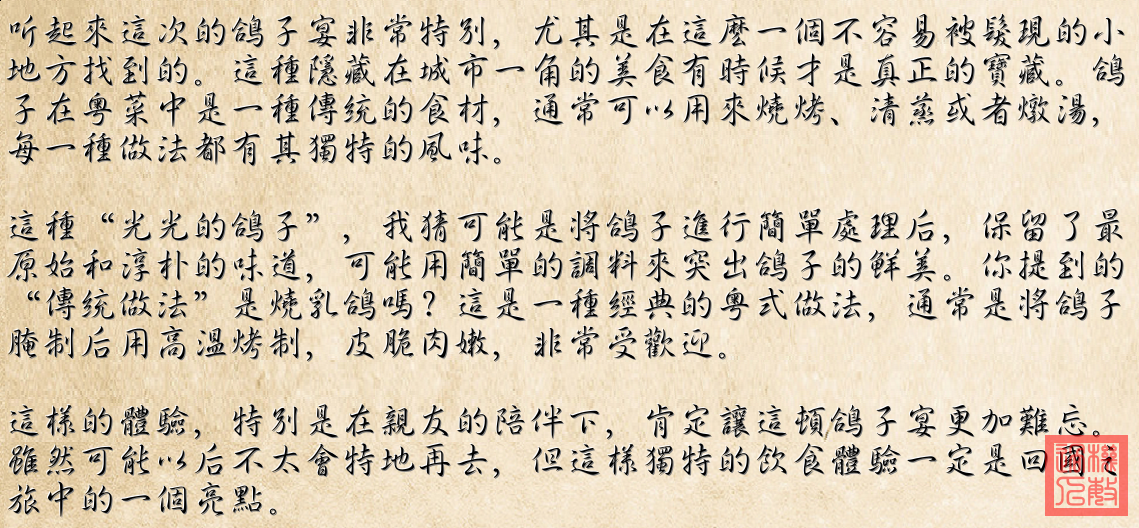 听起來這次的鴿子宴非常特別，尤其是在這麼一個不容易被髮現的小
地方找到的。這種隱藏在城市一角的美食有時候才是真正的寶藏。鴿
子在粵菜中是一種傳統的食材，通常可以用來燒烤、清蒸或者燉湯，
每一種做法都有其獨特的風味。
這種“光光的鴿子”，我猜可能是將鴿子進行簡單處理后，保留了最
原始和淳朴的味道，可能用簡單的調料來突出鴿子的鮮美。你提到的
“傳統做法”是燒乳鴿嗎？這是一種經典的粵式做法，通常是將鴿子
腌制后用高溫烤制，皮脆肉嫩，非常受歡迎。
這樣的體驗，特別是在親友的陪伴下，肯定讓這頓鴿子宴更加難忘。
雖然可能以后不太會特地再去，但這樣獨特的飲食體驗一定是回國之
旅中的一個亮點。